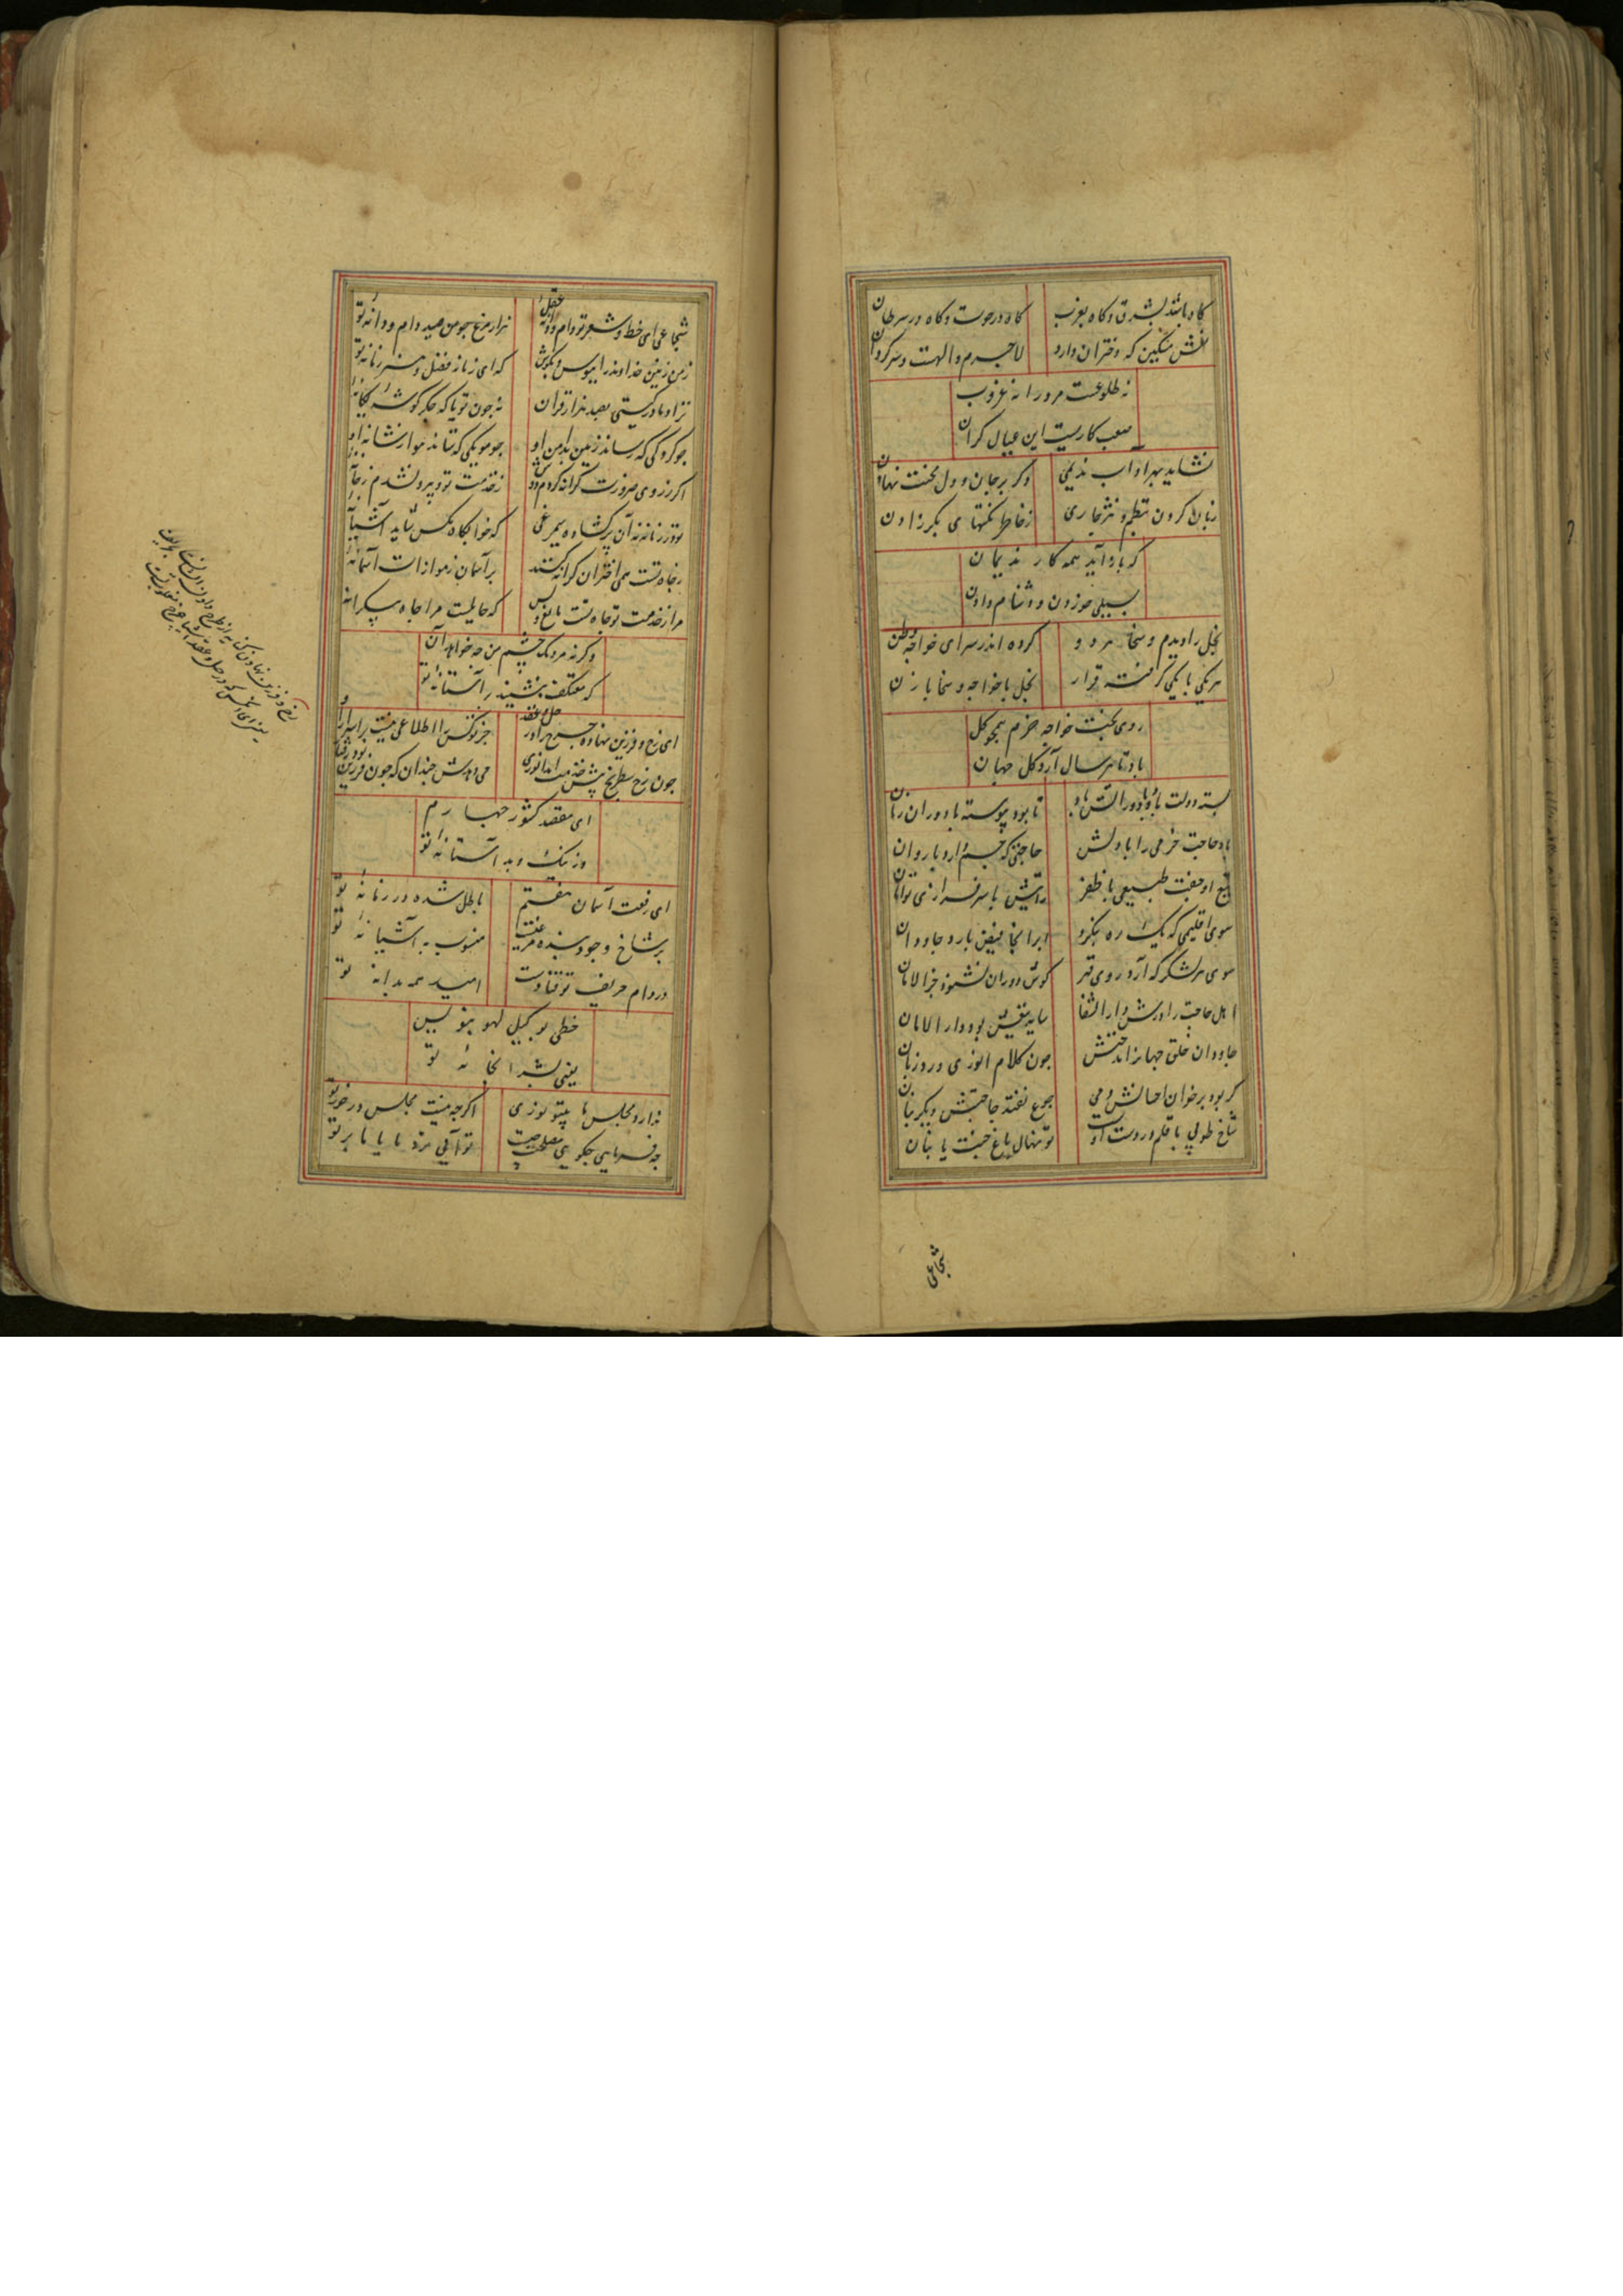 گاه باشد بشرق و گاه بغرب
گاه در حوت و گاه در سرطان
نعش مسکین که دختران دارد
لاجرم والهست و سرگردان
نه طلوعست مرو را نه غروب
صعب کاریست این عیال گران
نشاید بهر آداب ندیمی
دگر بر جان و دل محنت نهادن
زبان کردن بنظم و نثر جاری
ز خاطر نکتهای بکر زادن
که باز آید همه کار ندیمان
بسیلی خوردن و دشنام دادن
بخل را دیدم و سخا هر دو
کرده اندر سرای خواجه وطن
هر یکی با یکی گرفته قرار
بخل با خواجه و سخا با زن
روی بخت خواجه خرم همچو گل
باد تا هر سال آرد گل جهان
بسته دولت با
تا بود پیوسته با دوران زمان
باد صاحب خرمی را با دلش
صاحبتی که جسم دارد با روان
تیغ او جفت طبیعی با ظفر
رایتش با سرفرازی توامان
سوی اقلیمی که یک ره بنگرد
ابر آنجا فیض بارد جاودان
سوی هر لشکر که آرد روی قهر
گوش دوران نشنود جز الامان
اهل حاجت را درش دار الشفا
سایه سقفش بود دار الامان
جاودان خلق جهانرا مدحتش
چون کلام انوری ورد زبان
گر بود بر خوان احسانش دمی
جوع نفتد حاجتش دیگر بنان
شاخ طوبی یا قلم در دست او
تو نهال باغ جنت یا بنان
شجاعی
شجاعی ای خط و شعر تو دام و دانه عقل
هزار مرغ چو من صید دام و دانه تو
زمن زمین خداوند را ببوس و بگوش
که ای زمانه فضل و هنر زمانه تو
نزاد مادر گیتی بصد هزار قران
نه چون تو یا که جگرگوشه یگانه
چو کردکی که رساند زمین بدامن او
چو مویکی که ستاند هوا ز شانه او
اگر ز روی ضرورت کرانه کردم دوش
ز خدمت تو و بیرون شدم ز خانه
تو در زمانه نه آن پر گشاده سیمرغی
که خوابگاه مگس شاید آشیانه
ز جاه تست همی اختران کرانه کنند
بر آسمان ز موازات آستانه
مرا ز خدمت تو جاه تست مانع و بس
که حایلیست مرا جاه بیکرانه
وگرنه مردمک چشم من چه خواهد آن
که معتکف بنشیند بر آستانه تو
ای رخ و فرزین نهاده چرخ را در حل و عقد
جز تو کس را اطلاعی نیست بر اسرار او
چون رخ شطرنج پیش خدمت آمد انوری
می دهدش چندان که چون فرزین بود رفتار
ای مقصد کشور چهارم
وز نیک و بد آستانه تو
ای رفعت آسمان هفتم
باطل شده در زمانه تو
بر شاخ وجود بنده مرغیست
منسوب به آشیانه تو
در دام حریف تو فتادست
امید همه بدانه تو
خطی بوکیل لهو بنویس
یعنی بشرابخانه تو
ندارد مجلس ما بیتو نوری
اگر چه نیست مجلس در خور تو
چه فرمایی چگویی مصلحت چیست
تو آیی نزد ما یا ما بر تو